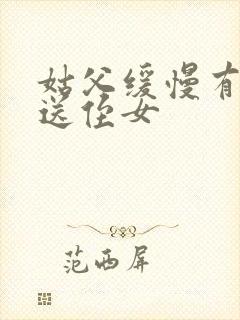 姑父缓慢有
送侄女
范西屏